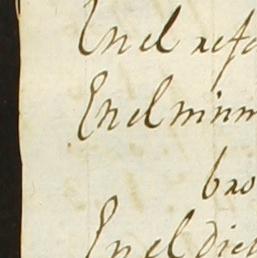 En el refe
En el mism
bro
En el dich